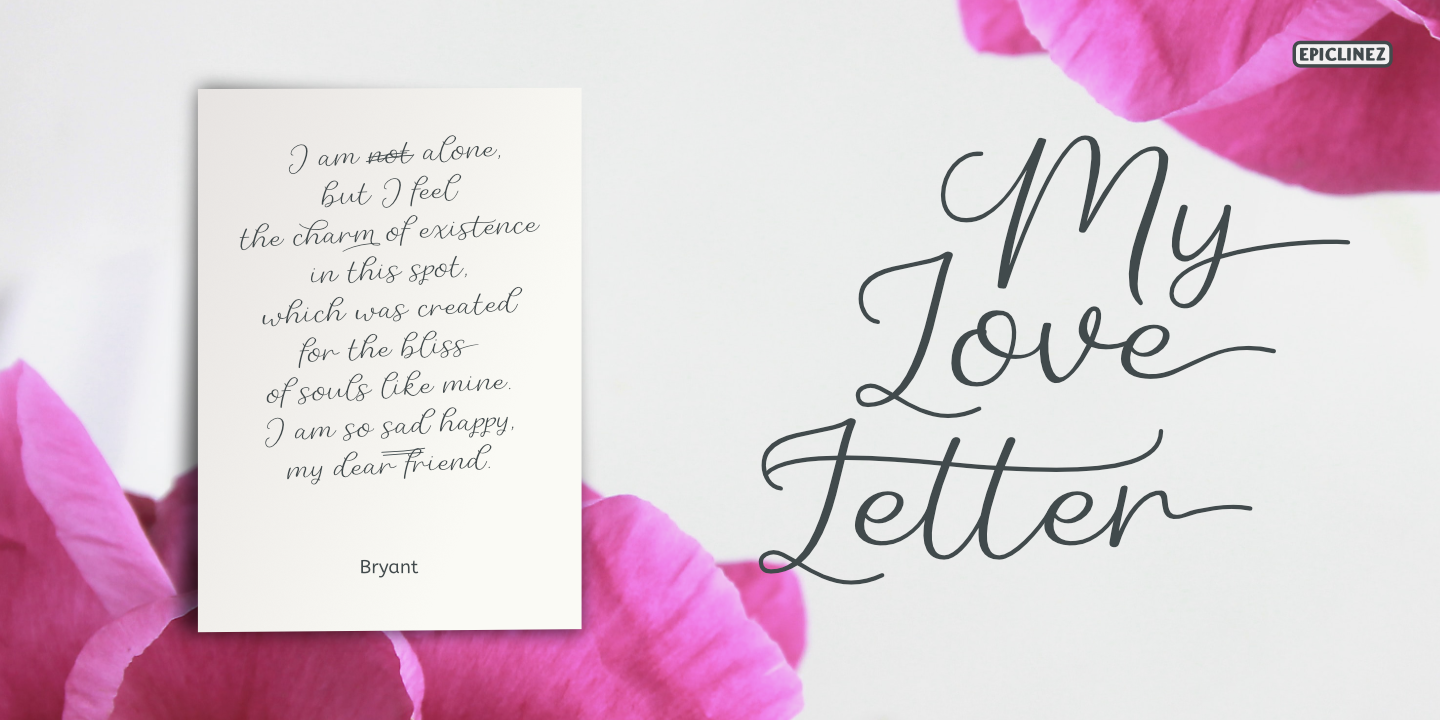 I am not alone,
but I feel
the charm of existence
in this spot,
which was created
for the bliss
of souls like mine.
I am so sad happy,
my dear friend.
Bryant
EPICLINEZ
My
Love
Letter